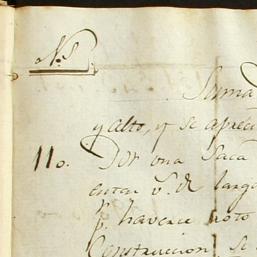 N.s
Suma
y alto, y se apreci
110. Por una Saca
entar v.s de largo
p.r haverce roto
Construccion, se